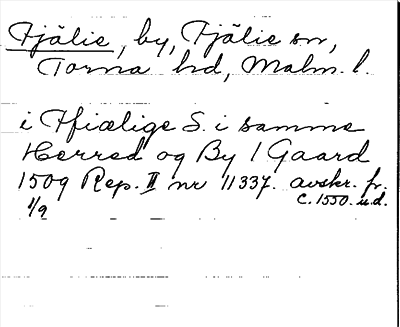 Fjälie, by, Fjälie sn,
Torna hd, Malm. l.
i Ffiælige S. i samme
Herred og By 1 Gaard
1509 Rep. II nr 11337. avskr. fr.
1/9 c. 1550. u.d.